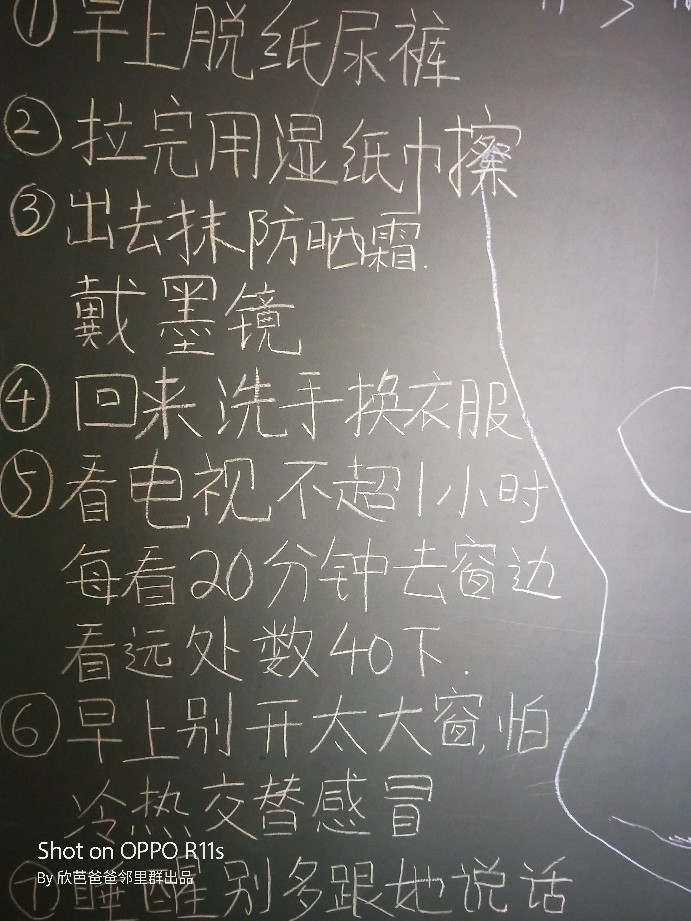 ①早上脱纸尿裤
②拉完用湿纸巾擦
③出去抹防晒霜.
戴墨镜
④回来洗手换衣服
⑤看电视不超1小时
每看20分钟去窗边
看远处数40下.
⑥早上别开太大窗,怕
冷热交替感冒
Shot on OPPO R11s
By 欣芭爸爸邻里群出品
⑦睡醒别多跟她说话